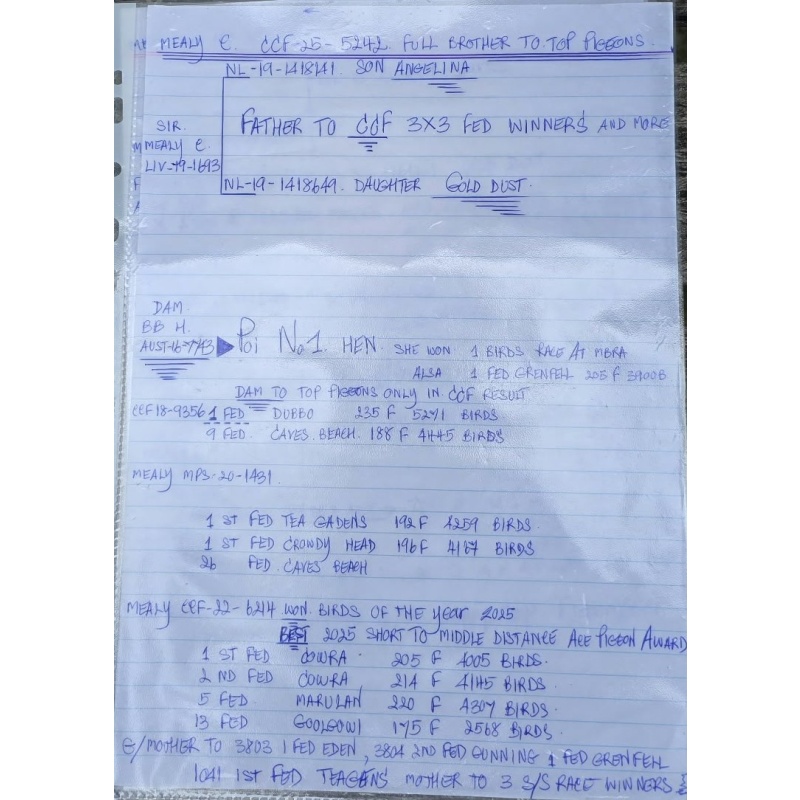 MEALY C. CCF-25-5242 FULL BROTHER TO TOP PIGEONS
NL-19-1418141. SON ANGELINA
SIR.
MEALY C.
LIV-19-1693
FATHER TO CCF 3X3 FED WINNERS AND MORE
NL-19-1418649. DAUGHTER GOLD DUST.
DAM.
BB H.
AUST-16-7743
POI No1. HEN. SHE WON 1 BIRDS RACE AT MBRA
ALSA 1 FED GRENFELL 205 F 3900B
DAM TO TOP PIGEONS ONLY IN CCF RESULT
CCF18-9356 1 FED DUBBO 235 F 5271 BIRDS
9 FED. CAVES. BEACH. 188 F 4445 BIRDS
MEALY MPS-20-1431.
1 ST FED TEA GADENS 192 F 4259 BIRDS.
1 ST FED CROWDY HEAD 196 F 4167 BIRDS
26 FED. CAVES BEACH
MEALY CCF-22-6214 WON. BIRDS OF THE YEAR 2025
BEST 2025 SHORT TO MIDDLE DISTANCE ACE PIGEON AWARD
1 ST FED COWRA 205 F 4005 BIRDS.
2 ND FED COWRA 214 F 4145 BIRDS.
5 FED MARULAN 220 F 4307 BIRDS.
13 FED GOOLGOWI 175 F 2568 BIRDS.
G/MOTHER TO 3803 1 FED EDEN, 3804 2ND FED GUNNING, 1 FED GRENFELL
1041 1ST FED TEAGENS MOTHER TO 3 S/S RACE WINNERS